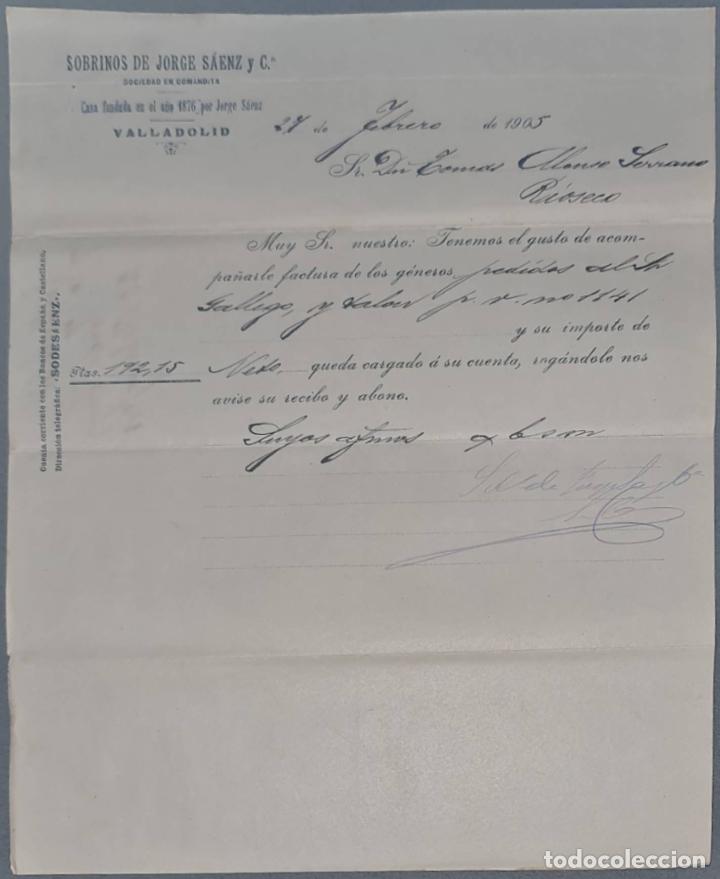 SOBRINOS DE JORGE SÁENZ y C.ª
SOCIEDAD EN COMANDITA
Casa fundada en el año 1876 por Jorge Sáenz
VALLADOLID
27 de Febrero de 1905
Sr. Dn Tomas Alonso Serrano
Rioseco
Muy Sr. nuestro: Tenemos el gusto de acom-
pañarle factura de los géneros pedidos al Sr
Gallego, y salen p. v. no 1141
y su importe de
Ptas. 192,15 Neto queda cargado á su cuenta, rogándole nos
avise su recibo y abono.
Suyos afmos
Cuenta corriente con los Bancos de España y Castellano.
Dirección telegráfica: «SODESÁENZ».
todocoleccion.net